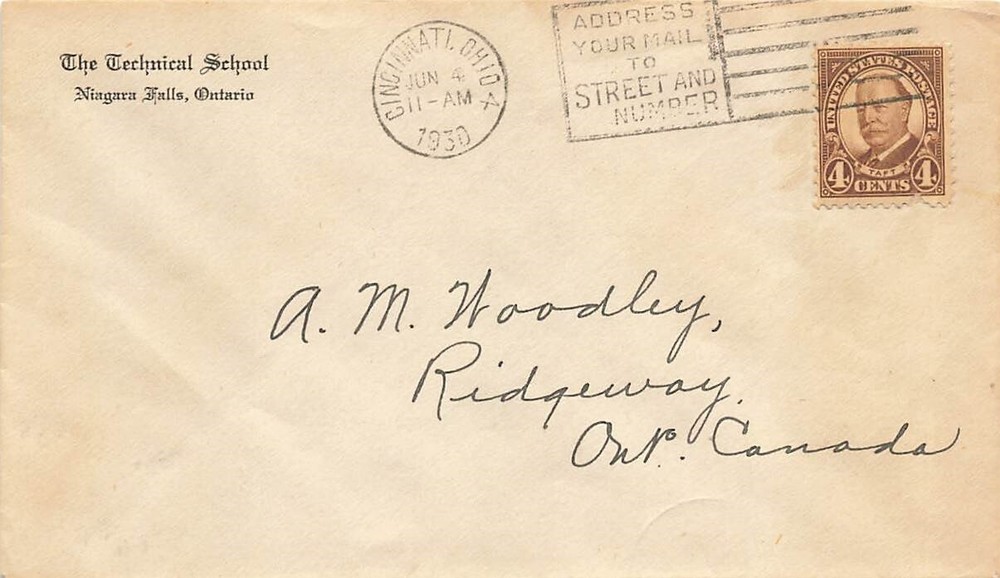 The Technical School
Niagara Falls, Ontario
CINCINNATI, OHIO 4
JUN 4
11-AM
1930
ADDRESS
YOUR MAIL
TO
STREET AND
NUMBER
UNITED STATES POSTAGE
TAFT
4 CENTS 4
A. M. Woodley,
Ridgeway,
Ont. Canada